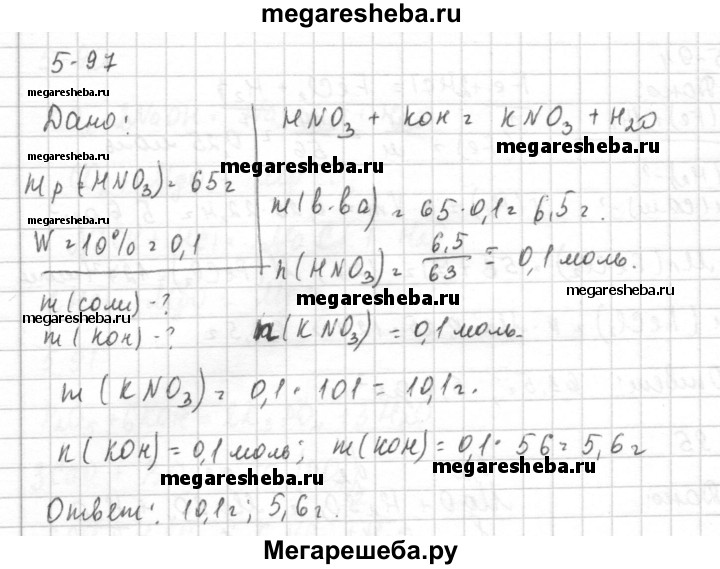 megaresheba.ru
5-97
megaresheba.ru
Дано:
HNO₃ + KOH = KNO₃ + H₂O
megaresheba.ru
megaresheba.ru
mр (HNO₃) = 65 г
m(в-ва) = 65 · 0,1 = 6,5 г.
W = 10% = 0,1
n(HNO₃) = 6,5/63 = 0,1 моль.
megaresheba.ru
m (соли) - ?
megaresheba.ru
m (KOH) - ?
n(KNO₃) = 0,1 моль.
m (KNO₃) = 0,1 · 101 = 10,1 г.
n (KOH) = 0,1 моль; m(KOH) = 0,1 · 56 = 5,6 г
megaresheba.ru
megaresheba.ru
Ответ: 10,1 г; 5,6 г.
Мегарешеба.ру